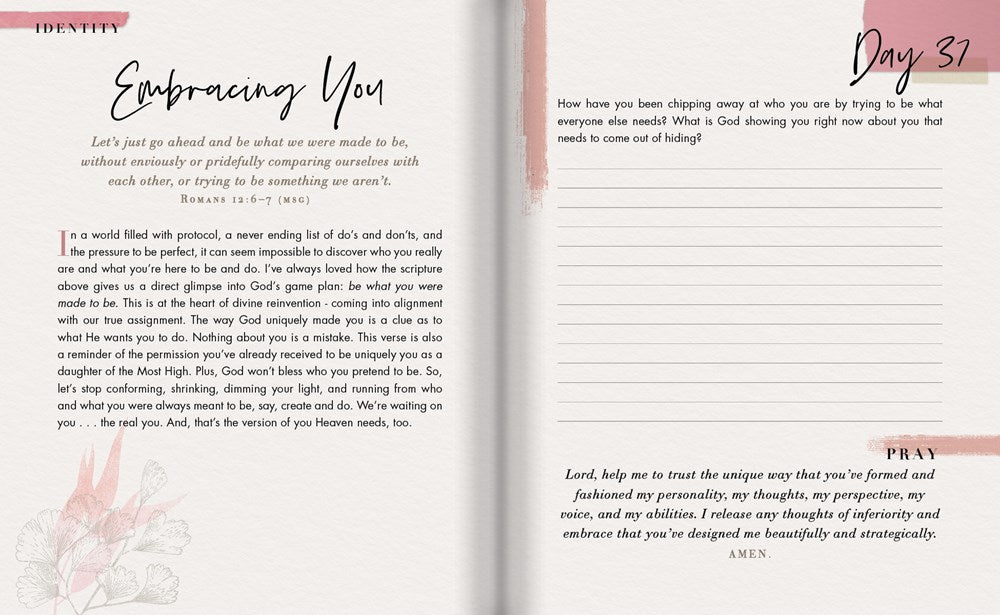 IDENTITY
Embracing You
Let's just go ahead and be what we were made to be,
without enviously or pridefully comparing ourselves with
each other, or trying to be something we aren't.
Romans 12:6–7 (msg)
In a world filled with protocol, a never ending list of do's and don'ts, and
the pressure to be perfect, it can seem impossible to discover who you really
are and what you're here to be and do. I've always loved how the scripture
above gives us a direct glimpse into God's game plan: be what you were
made to be. This is at the heart of divine reinvention - coming into alignment
with our true assignment. The way God uniquely made you is a clue as to
what He wants you to do. Nothing about you is a mistake. This verse is also
a reminder of the permission you've already received to be uniquely you as a
daughter of the Most High. Plus, God won't bless who you pretend to be. So,
let's stop conforming, shrinking, dimming your light, and running from who
and what you were always meant to be, say, create and do. We're waiting on
you . . . the real you. And, that's the version of you Heaven needs, too.
Day 37
How have you been chipping away at who you are by trying to be what
everyone else needs? What is God showing you right now about you that
needs to come out of hiding?
PRAY
Lord, help me to trust the unique way that you've formed and
fashioned my personality, my thoughts, my perspective, my
voice, and my abilities. I release any thoughts of inferiority and
embrace that you've designed me beautifully and strategically.
AMEN.